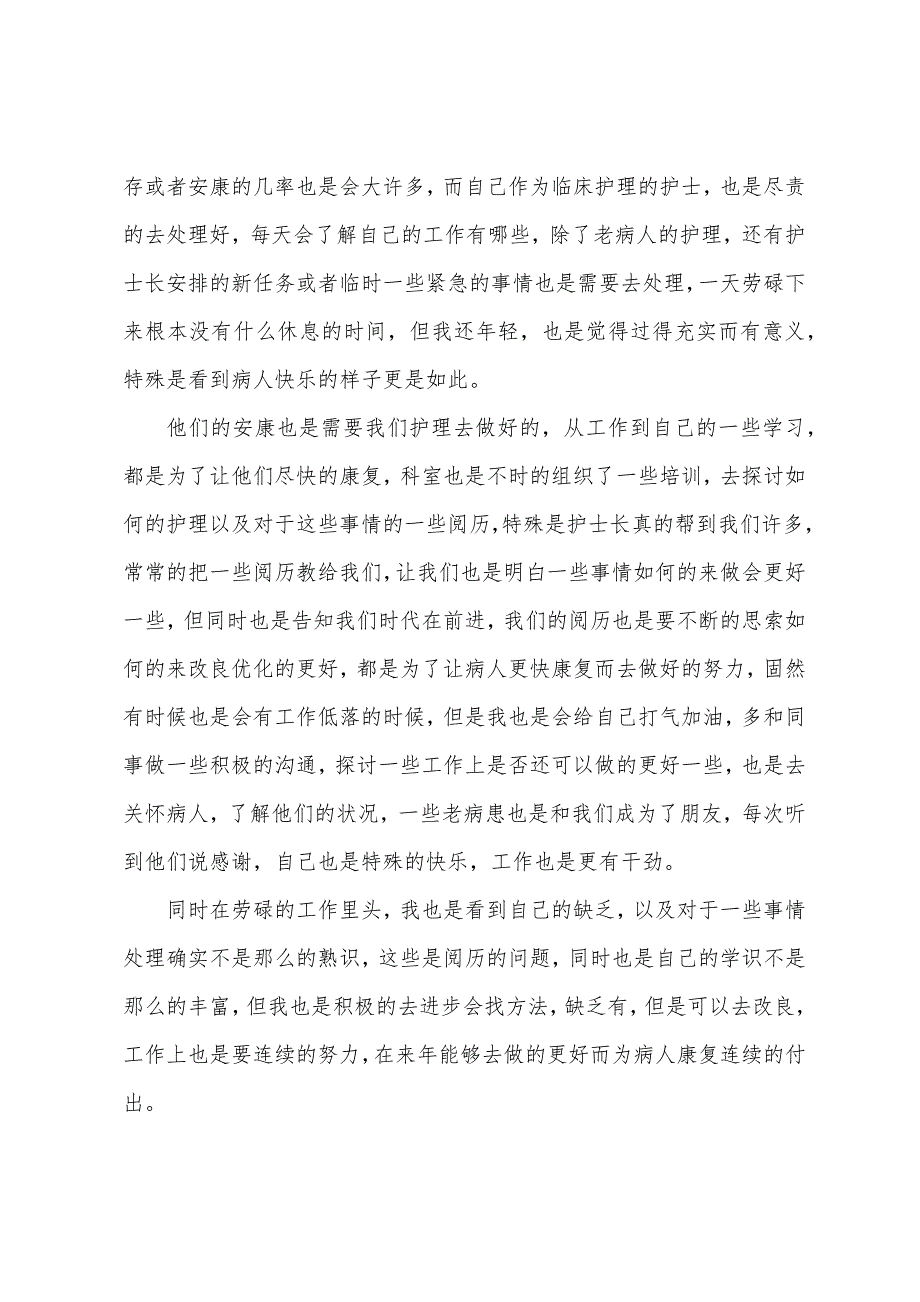 存或者安康的几率也是会大许多，而自己作为临床护理的护士，也是尽责
的去处理好，每天会了解自己的工作有哪些，除了老病人的护理，还有护
士长安排的新任务或者临时一些紧急的事情也是需要去处理，一天劳碌下
来根本没有什么休息的时间，但我还年轻，也是觉得过得充实而有意义，
特殊是看到病人快乐的样子更是如此。
他们的安康也是需要我们护理去做好的，从工作到自己的一些学习，
都是为了让他们尽快的康复，科室也是不时的组织了一些培训，去探讨如
何的护理以及对于这些事情的一些阅历，特殊是护士长真的帮到我们许多，
常常的把一些阅历教给我们，让我们也是明白一些事情如何的来做会更好
一些，但同时也是告知我们时代在前进，我们的阅历也是要不断的思索如
何的来改良优化的更好，都是为了让病人更快康复而去做好的努力，固然
有时候也是会有工作低落的时候，但是我也是会给自己打气加油，多和同
事做一些积极的沟通，探讨一些工作上是否还可以做的更好一些，也是去
关怀病人，了解他们的状况，一些老病患也是和我们成为了朋友，每次听
到他们说感谢，自己也是特殊的快乐，工作也是更有干劲。
同时在劳碌的工作里头，我也是看到自己的缺乏，以及对于一些事情
处理确实不是那么的熟识，这些是阅历的问题，同时也是自己的学识不是
那么的丰富，但我也是积极的去进步会找方法，缺乏有，但是可以去改良，
工作上也是要连续的努力，在来年能够去做的更好而为病人康复连续的付
出。